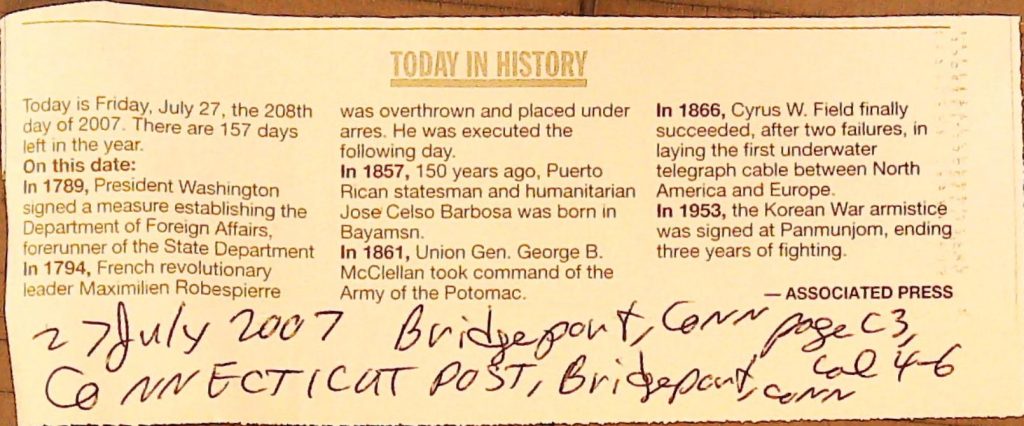 TODAY IN HISTORY
Today is Friday, July 27, the 208th
day of 2007. There are 157 days
left in the year.
On this date:
In 1789, President Washington
signed a measure establishing the
Department of Foreign Affairs,
forerunner of the State Department
In 1794, French revolutionary
leader Maximilien Robespierre
was overthrown and placed under
arres. He was executed the
following day.
In 1857, 150 years ago, Puerto
Rican statesman and humanitarian
Jose Celso Barbosa was born in
Bayamsn.
In 1861, Union Gen. George B.
McClellan took command of the
Army of the Potomac.
In 1866, Cyrus W. Field finally
succeeded, after two failures, in
laying the first underwater
telegraph cable between North
America and Europe.
In 1953, the Korean War armistice
was signed at Panmunjom, ending
three years of fighting.
— ASSOCIATED PRESS
27 July 2007 Bridgeport, Conn page C3,
CONNECTICUT POST, Bridgeport, Conn Col 4-6